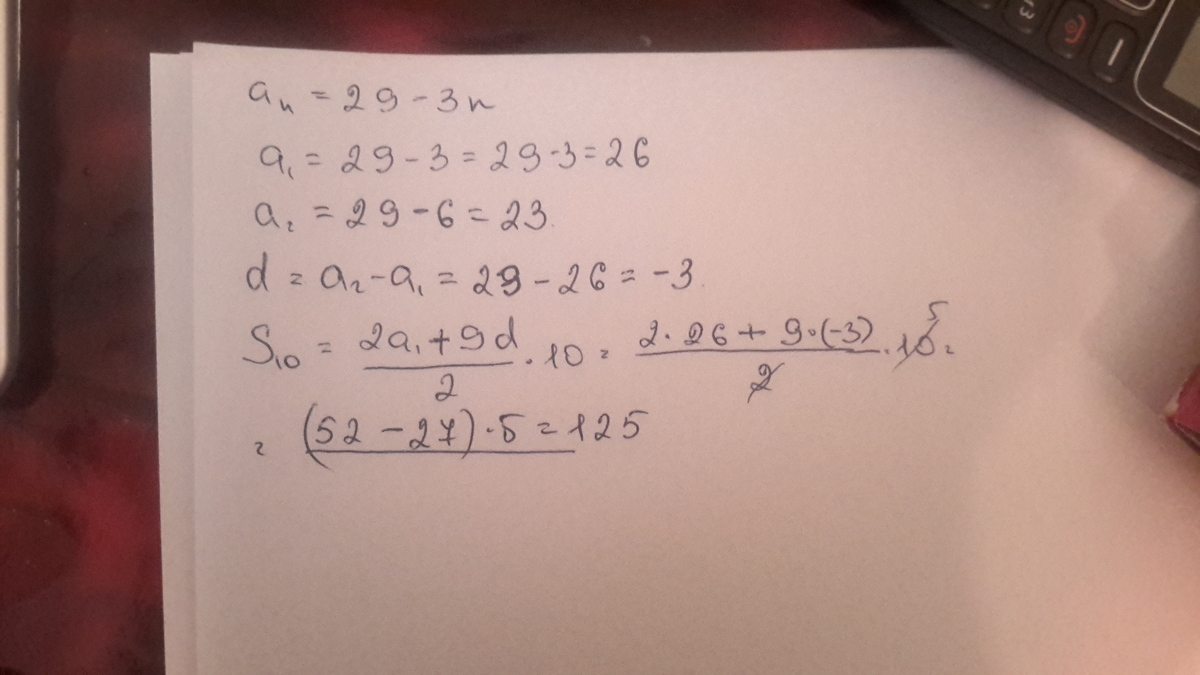 aₙ = 29 - 3n
a₁ = 29 - 3 = 29 - 3 = 26
a₂ = 29 - 6 = 23.
d = a₂ - a₁ = 29 - 26 = -3.
S₁₀ = (2a₁ + 9d)/2 · 10 = (2 · 26 + 9 · (-3))/2 · 10 5 =
= (52 - 27) · 5 = 125